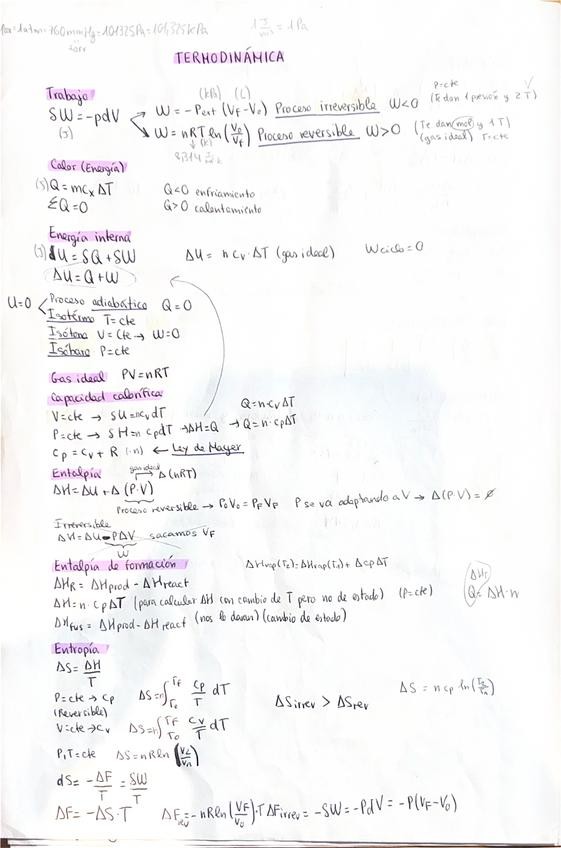 1atm = 760mmHg = 101325Pa = 101,325kPa
Torr
1 J/m³ = 1Pa
TERMODINÁMICA
Trabajo
(kPa) (L)
δW = -pdV → W = -Pext (Vf - V₀) Proceso irreversible W<0
P=cte
(Te dan 1 presión y 2 T)
(J) → W = nRT ln(V₀/Vf) Proceso reversible W>0
(Te dan mol y 1 T)
(gas ideal) T=cte
(K)
Calor (Energía)
(J) Q = mcₓ ΔT Q<0 enfriamiento
ΣQ=0 Q>0 calentamiento
Energía interna
(J) dU = δQ + δW ΔU = n cv · ΔT (gas ideal) Wciclo = 0
ΔU = Q + W
U=0 Proceso adiabático Q = 0
Isotérmo T = cte
Isócoro V = Cte → W=0
Isóbaro P=cte
Gas ideal PV=nRT
Capacidad calorífica
V=cte → δU=ncvdT Q=n·cvΔT
P=cte → δH=n cpdT → ΔH=Q → Q=n·cpΔT
cp = cv + R (·n) ← Ley de Mayer
Entalpía gas ideal → Δ(nRT)
ΔH = ΔU + Δ (P·V)
Proceso reversible → P₀V₀ = PFVF P se va adaptando a V → Δ(P·V) = ∅
Irreversible
ΔH = ΔU - PΔV sacamos VF
W
Entalpía de formación ΔHvap(T₂) = ΔHvap(T₁) + ΔcpΔT
ΔHR = ΔHprod - ΔHreact
ΔH = n · cpΔT (para calcular ΔH con cambio de T pero no de estado) (P=cte)
Q = ΔH · n
ΔHfus = ΔHprod - ΔHreact (nos lo daran) (cambio de estado)
Entropía
ΔS = ΔH/T
P=cte → cp ΔS = n∫T₀^TF cp/T dT ΔSirrev > ΔSrev
ΔS = n cp ln(T₂/T₁)
(Reversible)
V=cte → cv ΔS = n∫T₀^TF cv/T dT
P,T=cte ΔS = nRln (V₂/V₁)
dS = -ΔF/T = δW/T
ΔF = -ΔS · T ΔFrev = -nRln (VF/V₀)·T ΔFirrev = -δW = -PdV = -P(VF-V₀)